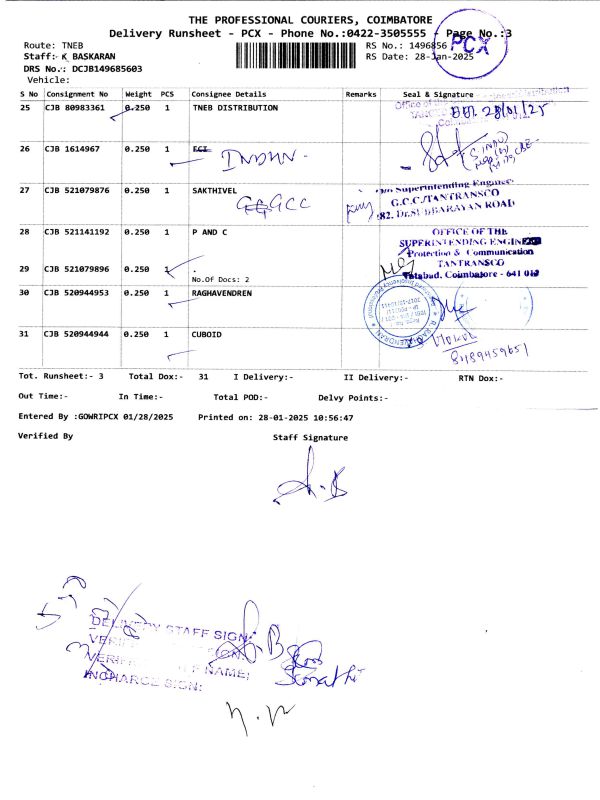 THE PROFESSIONAL COURIERS, COIMBATORE
Delivery Runsheet - PCX - Phone No.:0422-3505555 - Page No.:3
Route: TNEB
RS No.: 1496856
PCX
Staff:- K BASKARAN
RS Date: 28-Jan-2025
DRS No.: DCJB149685603
Vehicle:
S No Consignment No Weight PCS Consignee Details Remarks Seal & Signature
25 CJB 80983361 0.250 1 TNEB DISTRIBUTION
28/01/25
26 CJB 1614967 0.250 1
27 CJB 521079876 0.250 1 SAKTHIVEL
GCC
Superintending Engineer
G.C.C./TANTRANSCO
82, Dr.SUBBARAYAN ROAD
28 CJB 521141192 0.250 1 P AND C
OFFICE OF THE
SUPERINTENDING ENGINEER
Protection & Communication
TANTRANSCO
Tatabad, Coimbatore - 641 012
29 CJB 521079896 0.250 1 .
No.Of Docs: 2
30 CJB 520944953 0.250 1 RAGHAVENDREN
31 CJB 520944944 0.250 1 CUBOID
8489459651
Tot. Runsheet:- 3 Total Dox:- 31 I Delivery:- II Delivery:- RTN Dox:-
Out Time:- In Time:- Total POD:- Delvy Points:-
Entered By :GOWRIPCX 01/28/2025 Printed on: 28-01-2025 10:56:47
Verified By Staff Signature
DELIVERY STAFF SIGN:
INCHARGE SIGN: